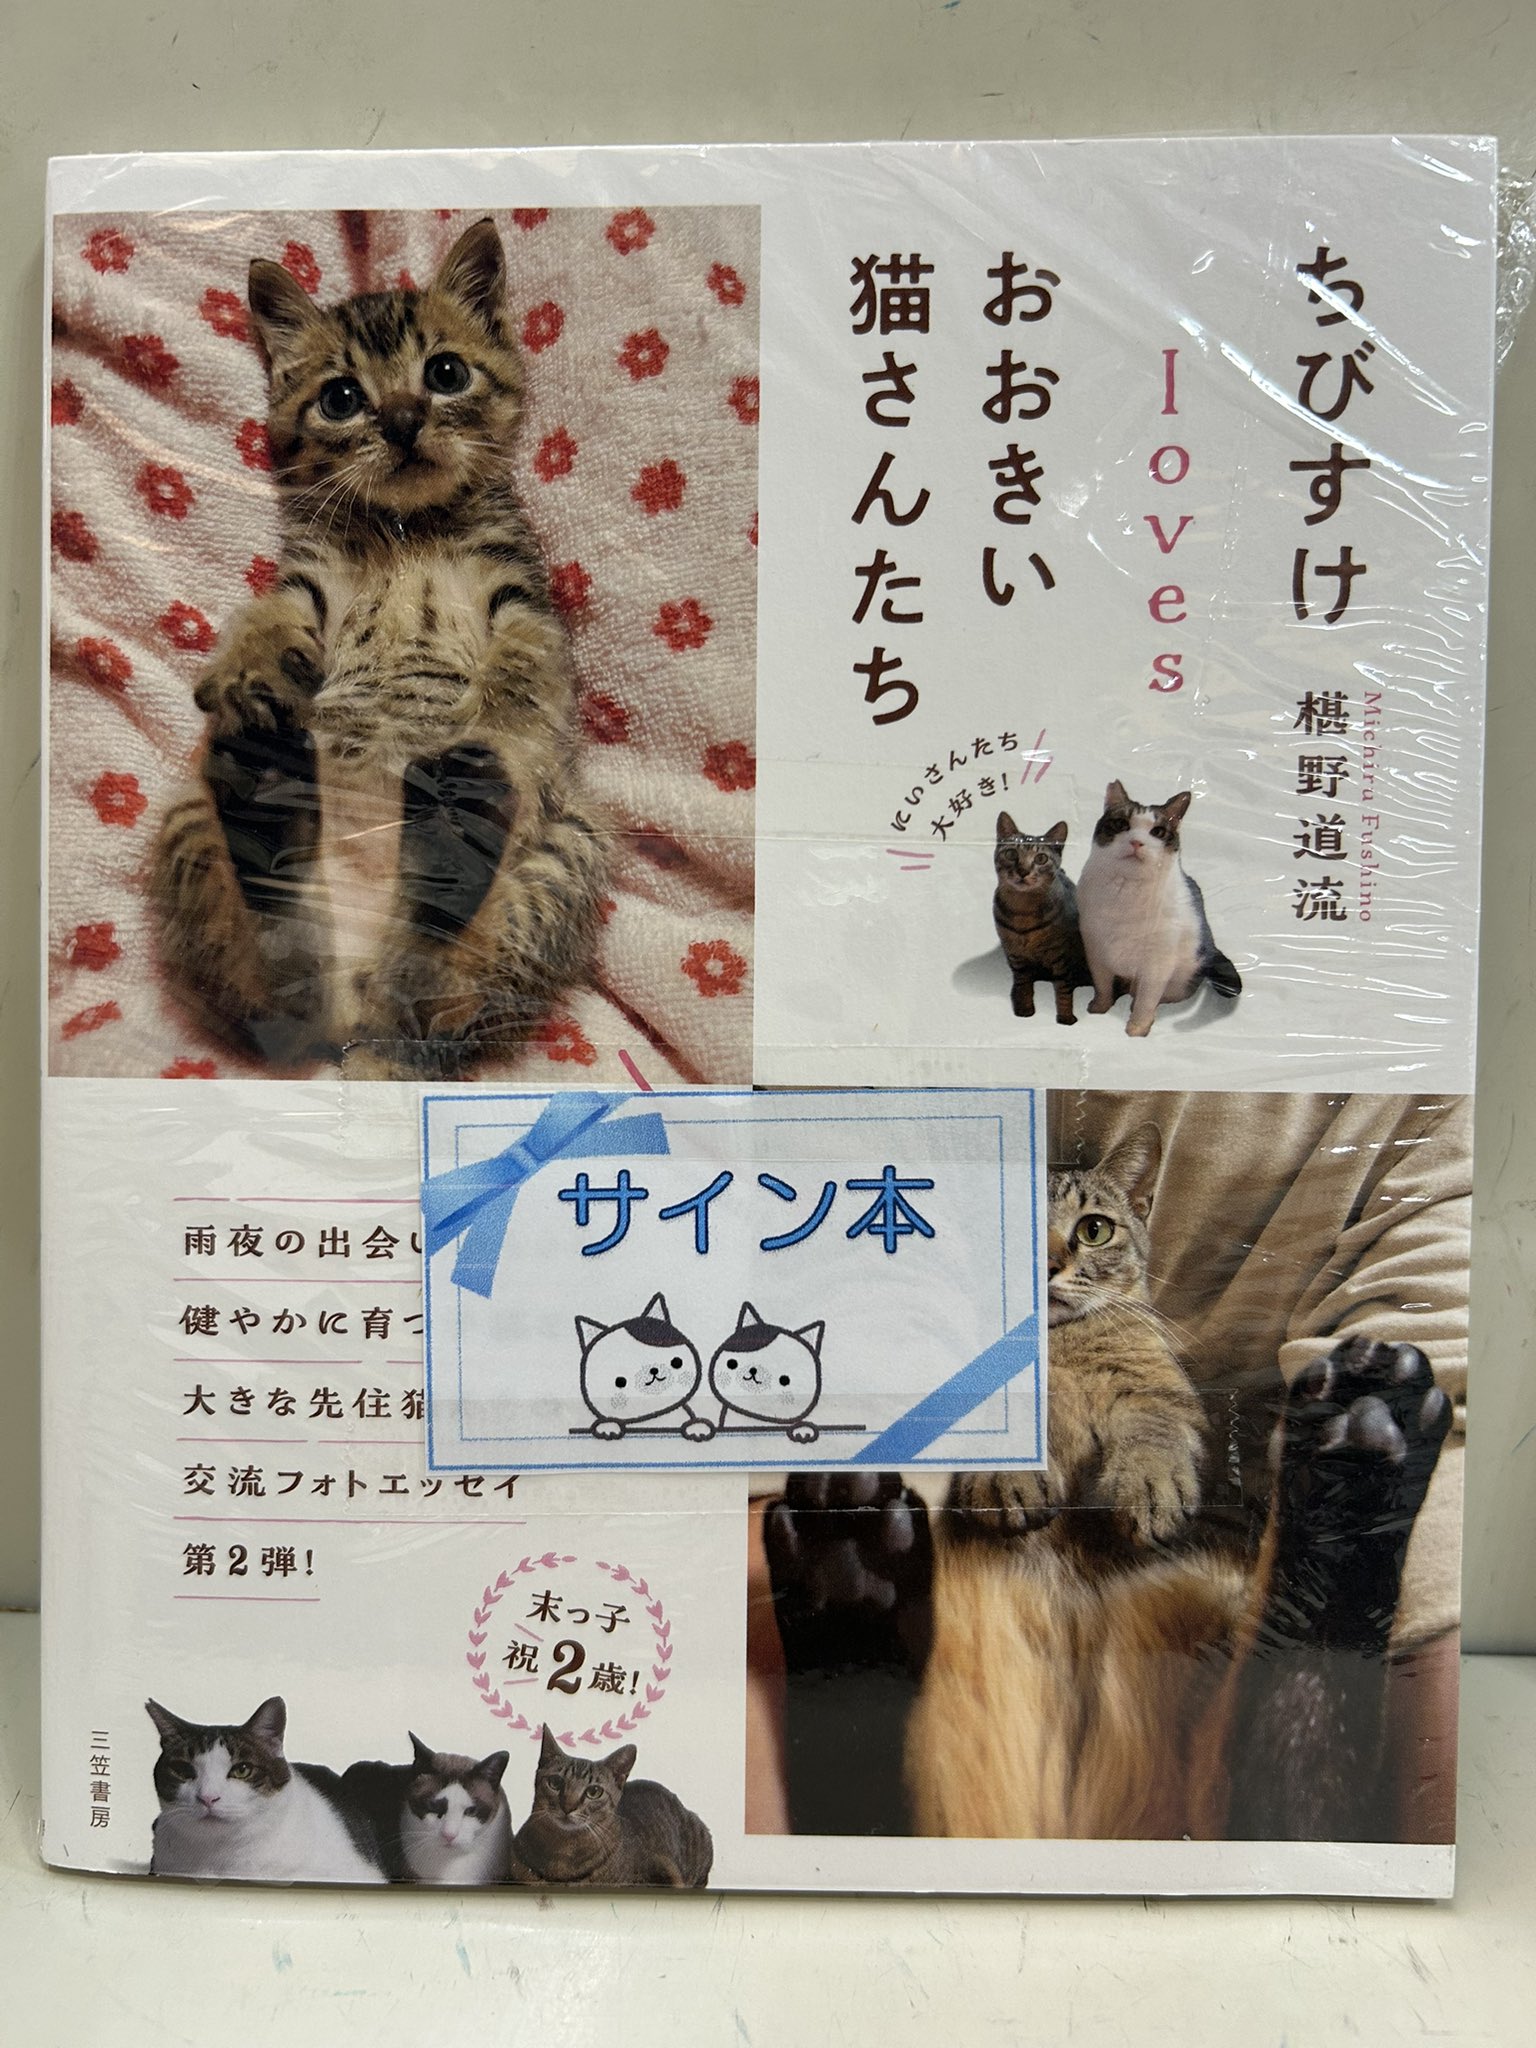 ちびすけ
loves
おおきい
猫さんたち
椹野道流
Michiru Fushino
にいさんたち
大好き!
サイン本
雨夜の出会い
健やかに育つ
大きな先住猫
交流フォトエッセイ
第2弾!
末っ子
祝2歳!
三笠書房